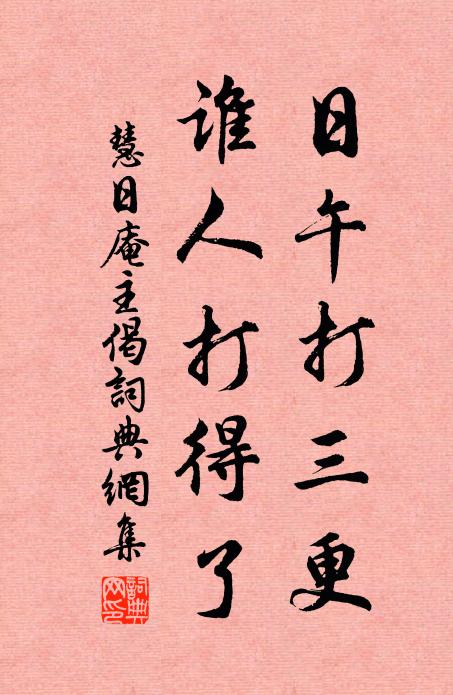 日午打三更
谁人打得了
慧日庵主偈詞典網集
詞典網印